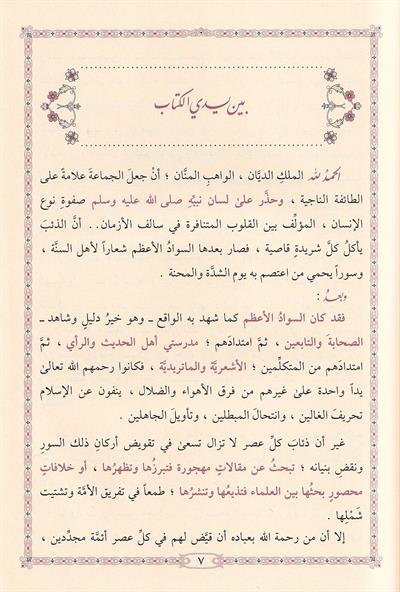 بين يدي الكتاب
الحمد لله الملكِ الديَّان ، الواهبِ المنَّان ؛ أنْ جعلَ الجماعةَ علامةً على
الطائفة الناجية ، وحذَّر علىٰ لسان نبيِّهِ صلى الله عليه وسلم صفوةِ نوع
الإنسان ، المؤلِّف بين القلوب المتنافرة في سالف الأزمان . . أنَّ الذئبَ
يأكلُ كلَّ شريدةٍ قاصية ، فصار بعدها السوادُ الأعظم شعاراً لأهل السنَّة ،
وسوراً يحمي من اعتصم به يوم الشدَّة والمحنة .
وبعد :
فقد كان السوادُ الأعظم كما شهد به الواقع ـ وهو خيرُ دليلٍ وشاهد ـ
الصحابةَ والتابعين ، ثمَّ امتدادَهم ؛ مدرستي أهل الحديث والرأي ، ثمَّ
امتدادَهم من المتكلِّمين ؛ الأشعريَّة والماتريديَّة ، فكانوا رحمهم الله تعالىٰ
يداً واحدة علىٰ غيرهم من فرق الأهواء والضلال ، ينفون عن الإسلام
تحريفَ الغالين ، وانتحالَ المبطلين ، وتأويلَ الجاهلين .
غير أن ذئابَ كلِّ عصر لا تزال تسعىٰ في تقويض أركانِ ذلك السورِ
ونقضِ بنيانه ؛ تبحثُ عن مقالاتٍ مهجورة فتبرزُها وتظهرُها ، أو خلافاتٍ
محصورٍ بحثُها بين العلماء فتذيعُها وتنشرُها ؛ طمعاً في تفريق الأمَّة وتشتيت
شَمْلِها .
إلا أن من رحمة الله بعباده أن قيَّض لهم في كلِّ عصر أئمَّة مجدِّدين ،
٧